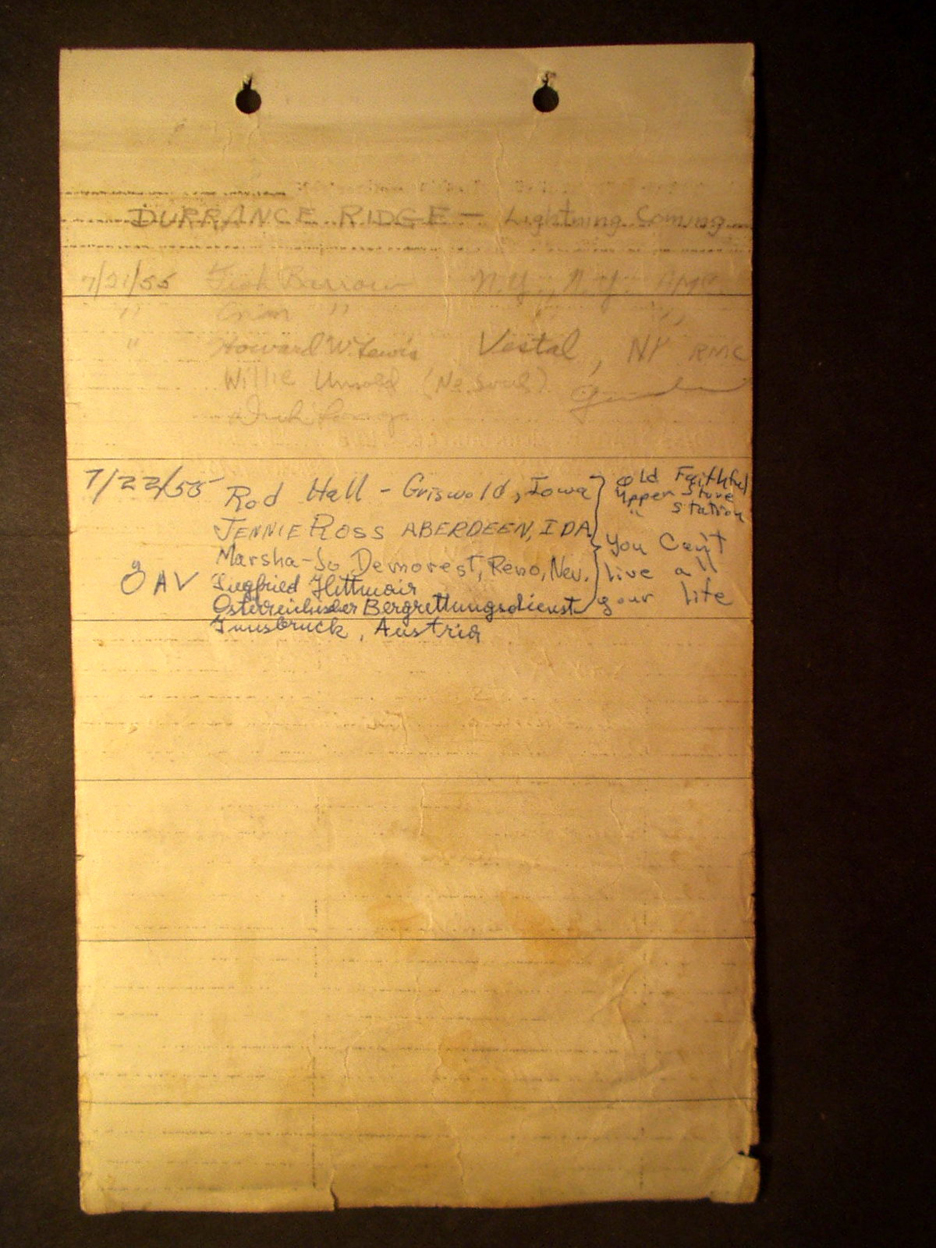 DURRANCE RIDGE — Lightning Coming
7/21/55 Dick Barrow N.Y., N.Y. AMC
" " "
" Howard W. Lewis Vestal, NY RMC
Willie Unsold (No Soul)
Dick
7/22/55 Rod Hall - Griswold, Iowa
Old Faithful
Upper Store
" Station
JENNIE ROSS ABERDEEN, IDA
You Can't
Marsha-Jo Demorest, Reno, Nev.
live all
ÖAV Siegfried Hittmair
your life
Österreichischer Bergrettungsdienst
Innsbruck, Austria